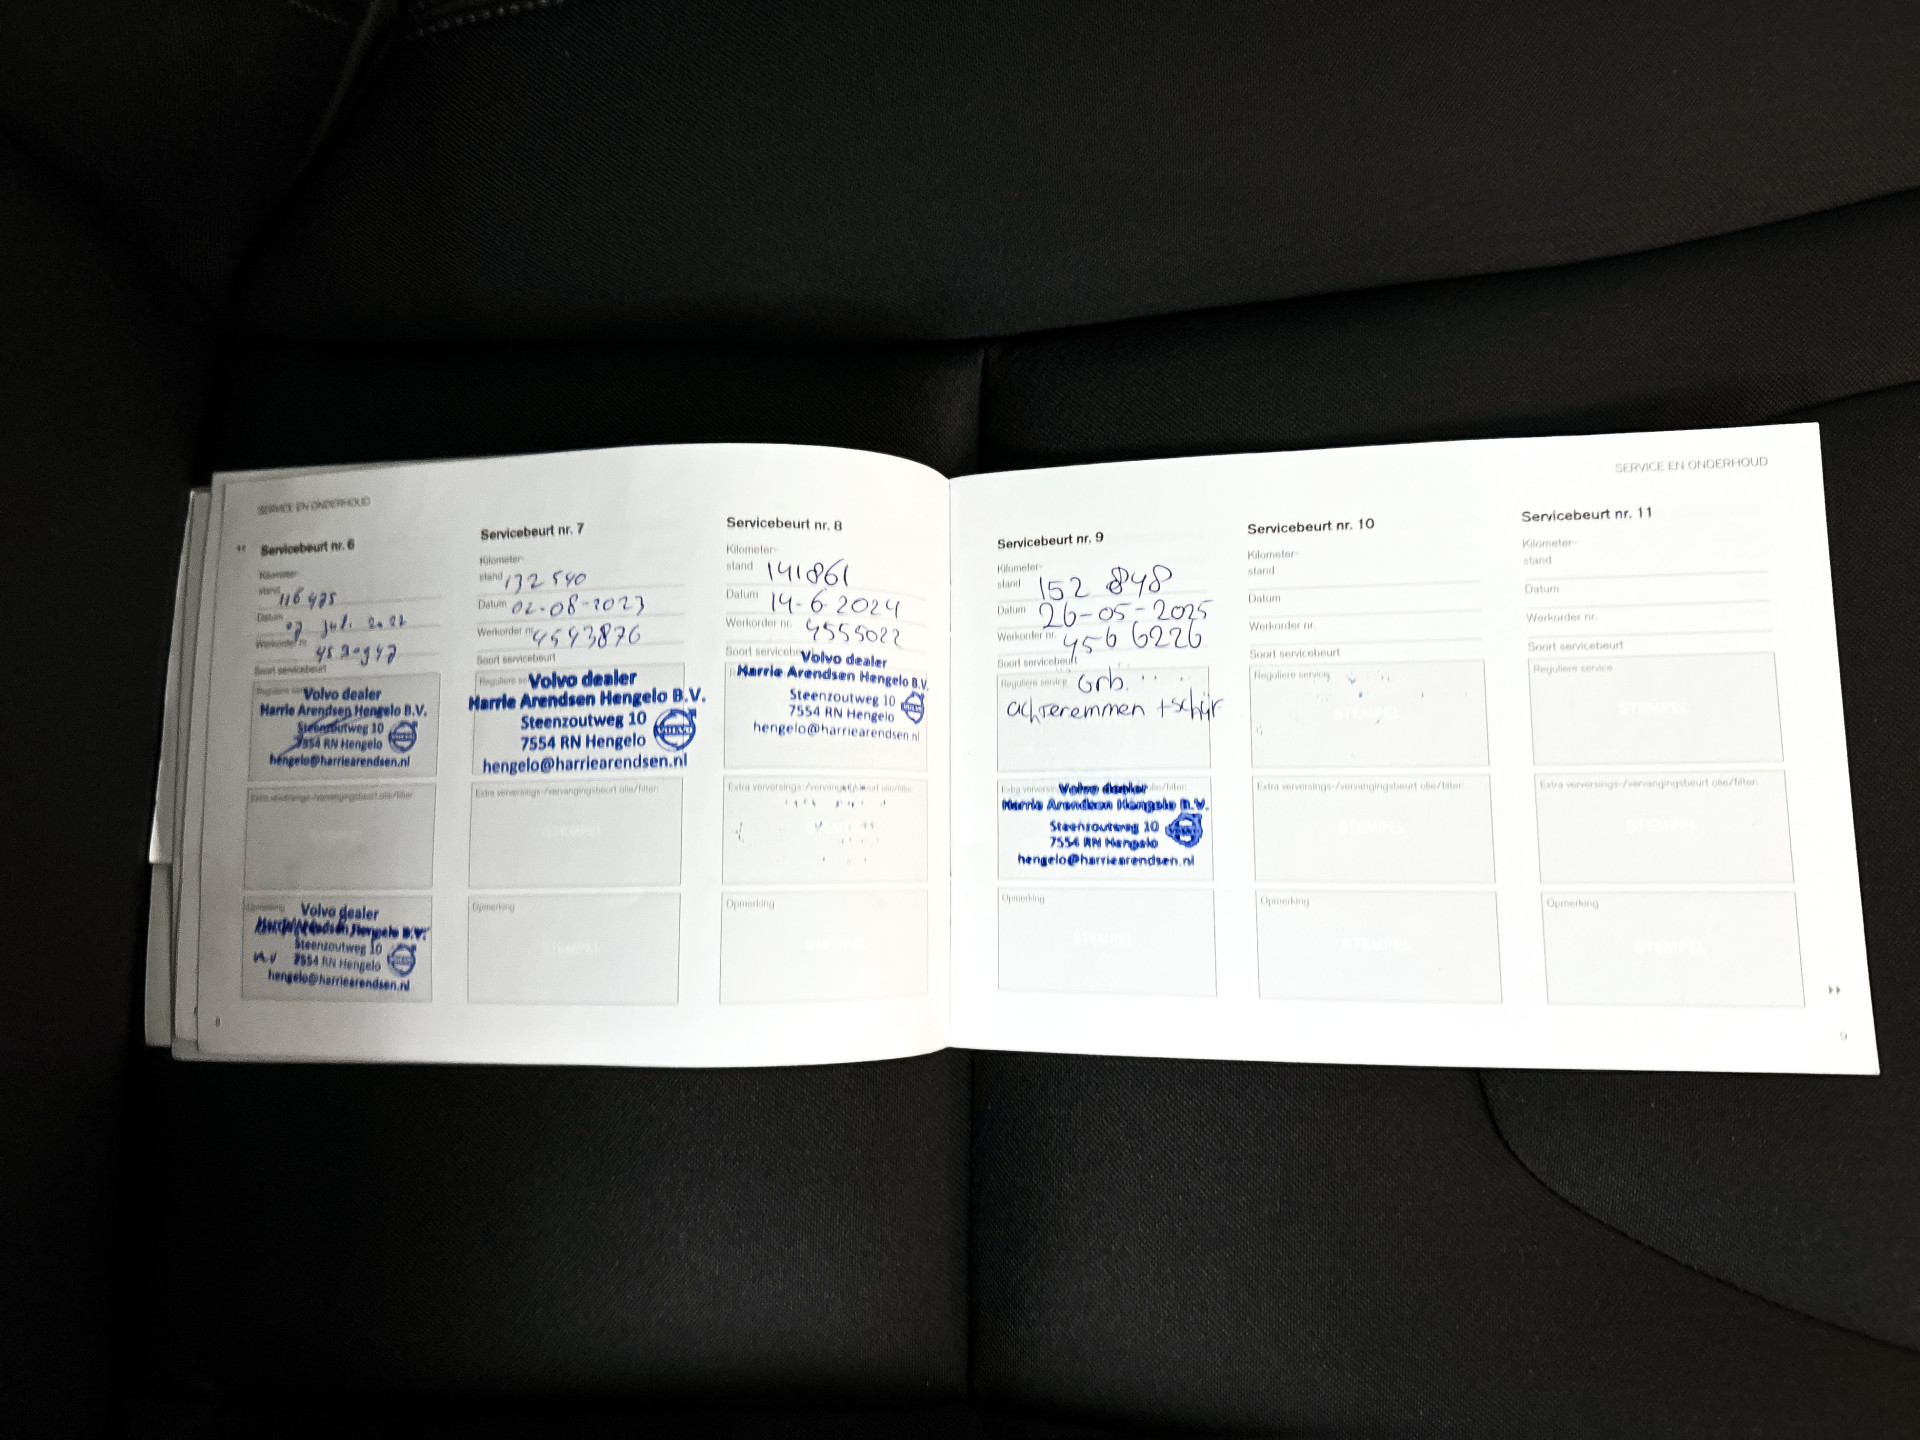 SERVICE EN ONDERHOUD
Servicebeurt nr. 6
Kilometer-
stand 116 475
Datum 07 jul. 2022
Werkorder nr.
Soort servicebeurt
Reguliere
Volvo dealer
Harrie Arendsen Hengelo B.V.
Steenzoutweg 10
7554 RN Hengelo
hengelo@harriearendsen.nl
Extra verversings-/vervangingsbeurt olie/filter:
Opmerking
Volvo dealer
Harrie Arendsen Hengelo B.V.
Steenzoutweg 10
7554 RN Hengelo
hengelo@harriearendsen.nl
8
Servicebeurt nr. 7
Kilometer-
stand 132 540
Datum 02-08-2023
Werkorder nr. 4543876
Soort servicebeurt
Reguliere
Volvo dealer
Harrie Arendsen Hengelo B.V.
Steenzoutweg 10
7554 RN Hengelo
hengelo@harriearendsen.nl
Extra verversings-/vervangingsbeurt olie/filter:
STEMPEL
Opmerking
STEMPEL
Servicebeurt nr. 8
Kilometer-
stand 141861
Datum 14-6-2024
Werkorder nr. 4555022
Soort
Volvo dealer
Harrie Arendsen Hengelo B.V.
Steenzoutweg 10
7554 RN Hengelo
hengelo@harriearendsen.nl
Extra verversings-/vervangingsbeurt olie/filter
Opmerking
STEMPEL
SERVICE EN ONDERHOUD
Servicebeurt nr. 9
Kilometer-
stand 152 848
Datum 26-05-2025
Werkorder nr. 456 6226
Soort servicebeurt
Reguliere service Grb.
achteremmen + schijf
Extra olie/filter:
Volvo dealer
Harrie Arendsen Hengelo B.V.
Steenzoutweg 10
7554 RN Hengelo
hengelo@harriearendsen.nl
Opmerking
STEMPEL
Servicebeurt nr. 10
Kilometer-
stand
Datum
Werkorder nr.
Soort servicebeurt
Reguliere service
STEMPEL
Extra verversings-/vervangingsbeurt olie/filter:
STEMPEL
Opmerking
STEMPEL
Servicebeurt nr. 11
Kilometer-
stand
Datum
Werkorder nr.
Soort servicebeurt
Reguliere service
STEMPEL
Extra verversings-/vervangingsbeurt olie/filter:
STEMPEL
Opmerking
STEMPEL
9